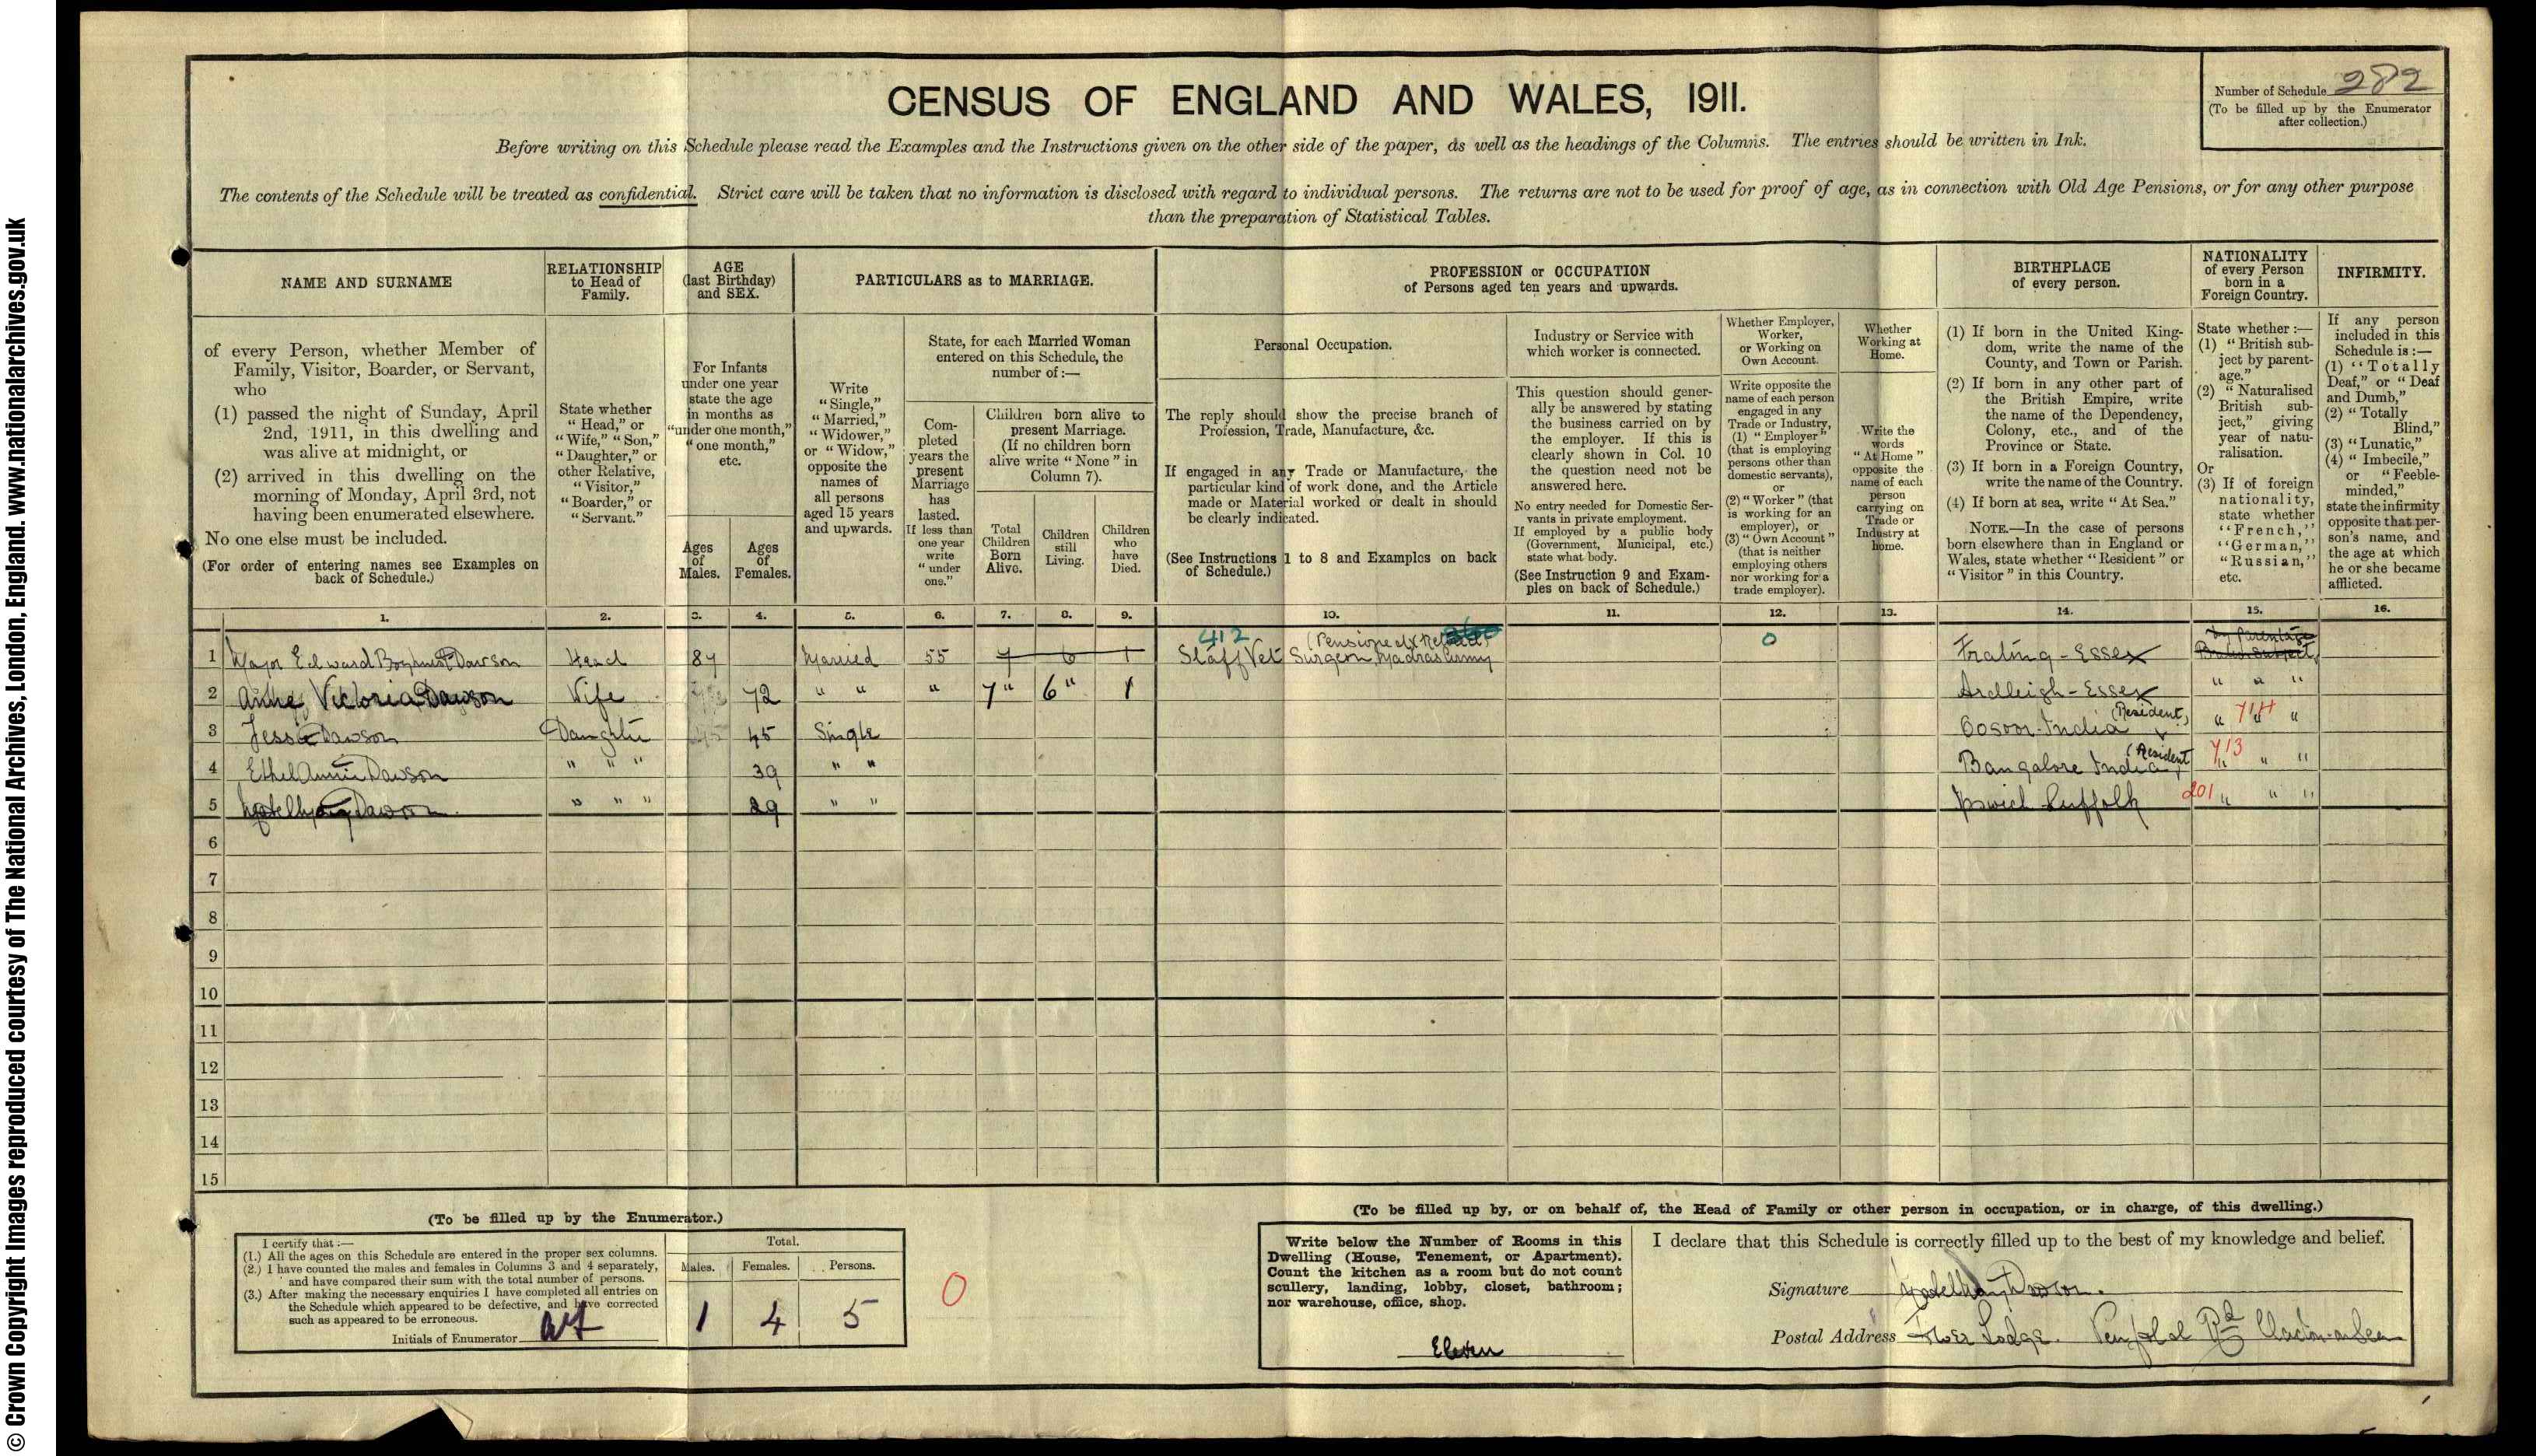 © Crown Copyright Images reproduced courtesy of The National Archives, London, England. www.nationalarchives.gov.uk
CENSUS OF ENGLAND AND WALES, 1911.
Number of Schedule 282
(To be filled up by the Enumerator
after collection.)
Before writing on this Schedule please read the Examples and the Instructions given on the other side of the paper, as well as the headings of the Columns. The entries should be written in Ink.
The contents of the Schedule will be treated as confidential. Strict care will be taken that no information is disclosed with regard to individual persons. The returns are not to be used for proof of age, as in connection with Old Age Pensions, or for any other purpose
than the preparation of Statistical Tables.
NAME AND SURNAME
of every Person, whether Member of
Family, Visitor, Boarder, or Servant,
who
(1) passed the night of Sunday, April
2nd, 1911, in this dwelling and
was alive at midnight, or
(2) arrived in this dwelling on the
morning of Monday, April 3rd, not
having been enumerated elsewhere.
No one else must be included.
(For order of entering names see Examples on
back of Schedule.)
RELATIONSHIP
to Head of
Family.
State whether
"Head," or
"Wife," "Son,"
"Daughter," or
other Relative,
"Visitor,"
"Boarder," or
"Servant."
AGE
(last Birthday)
and SEX.
For Infants
under one year
state the age
in months as
"under one month,"
"one month,"
etc.
Ages
of
Males.
Ages
of
Females.
PARTICULARS as to MARRIAGE.
Write
"Single,"
"Married,"
"Widower,"
or "Widow,"
opposite the
names of
all persons
aged 15 years
and upwards.
State, for each Married Woman
entered on this Schedule, the
number of:—
Com-
pleted
years the
present
Marriage
has
lasted.
If less than
one year
write
"under
one."
Children born alive to
present Marriage.
(If no children born
alive write "None" in
Column 7).
Total
Children
Born
Alive.
Children
still
Living.
Children
who
have
Died.
PROFESSION or OCCUPATION
of Persons aged ten years and upwards.
Personal Occupation.
The reply should show the precise branch of
Profession, Trade, Manufacture, &c.
If engaged in any Trade or Manufacture, the
particular kind of work done, and the Article
made or Material worked or dealt in should
be clearly indicated.
(See Instructions 1 to 8 and Examples on back
of Schedule.)
Industry or Service with
which worker is connected.
This question should gener-
ally be answered by stating
the business carried on by
the employer. If this is
clearly shown in Col. 10
the question need not be
answered here.
No entry needed for Domestic Ser-
vants in private employment.
If employed by a public body
(Government, Municipal, etc.)
state what body.
(See Instruction 9 and Exam-
ples on back of Schedule.)
Whether Employer,
Worker,
or Working on
Own Account.
Write opposite the
name of each person
engaged in any
Trade or Industry,
(1) "Employer"
(that is employing
persons other than
domestic servants),
or
(2) "Worker" (that
is working for an
employer), or
(3) "Own Account"
(that is neither
employing others
nor working for a
trade employer).
Whether
Working at
Home.
Write the
words
"At Home"
opposite the
name of each
person
carrying on
Trade or
Industry at
home.
BIRTHPLACE
of every person.
(1) If born in the United King-
dom, write the name of the
County, and Town or Parish.
(2) If born in any other part of
the British Empire, write
the name of the Dependency,
Colony, etc., and of the
Province or State.
(3) If born in a Foreign Country,
write the name of the Country.
(4) If born at sea, write "At Sea."
NOTE.—In the case of persons
born elsewhere than in England or
Wales, state whether "Resident" or
"Visitor" in this Country.
NATIONALITY
of every Person
born in a
Foreign Country.
State whether:—
(1) "British sub-
ject by parent-
age."
(2) "Naturalised
British sub-
ject," giving
year of natu-
ralisation.
Or
(3) If of foreign
nationality,
state whether
"French,"
"German,"
"Russian,"
etc.
INFIRMITY.
If any person
included in this
Schedule is:—
(1) "Totally
Deaf," or "Deaf
and Dumb,"
(2) "Totally
Blind,"
(3) "Lunatic,"
(4) "Imbecile,"
or "Feeble-
minded,"
state the infirmity
opposite that per-
son's name, and
the age at which
he or she became
afflicted.
1. 2. 3. 4. 5. 6. 7. 8. 9. 10. 11. 12. 13. 14. 15. 16.
412 (Pensioned & 0 by Parentage
1 Major Edward Dawson Head 84 Married 55 7 6 1 Staff Vet Surgeon Madras Army Frating - Essex British Subject
2 Annie Victoria Dawson Wife 72 " " " 7 " 6 " 1 Ardleigh - Essex " " "
3 Jessie Dawson Daughter 45 Single India (Resident) " 714 " "
4 Ethel Annie Dawson " " " 39 " " Bangalore India (Resident 713 " " "
5 Dawson " " " 29 " " Ipswich Suffolk 201 " " "
6
7
8
9
10
11
12
13
14
15
(To be filled up by the Enumerator.)
I certify that:—
(1.) All the ages on this Schedule are entered in the proper sex columns.
(2.) I have counted the males and females in Columns 3 and 4 separately,
and have compared their sum with the total number of persons.
(3.) After making the necessary enquiries I have completed all entries on
the Schedule which appeared to be defective, and have corrected
such as appeared to be erroneous.
Initials of Enumerator
Total.
Males. Females. Persons.
1 4 5
0
(To be filled up by, or on behalf of, the Head of Family or other person in occupation, or in charge, of this dwelling.)
Write below the Number of Rooms in this
Dwelling (House, Tenement, or Apartment).
Count the kitchen as a room but do not count
scullery, landing, lobby, closet, bathroom;
nor warehouse, office, shop.
Eleven
I declare that this Schedule is correctly filled up to the best of my knowledge and belief.
Signature Dawson.
Postal Address Tower Lodge. Penfold Rd Clacton-on-Sea